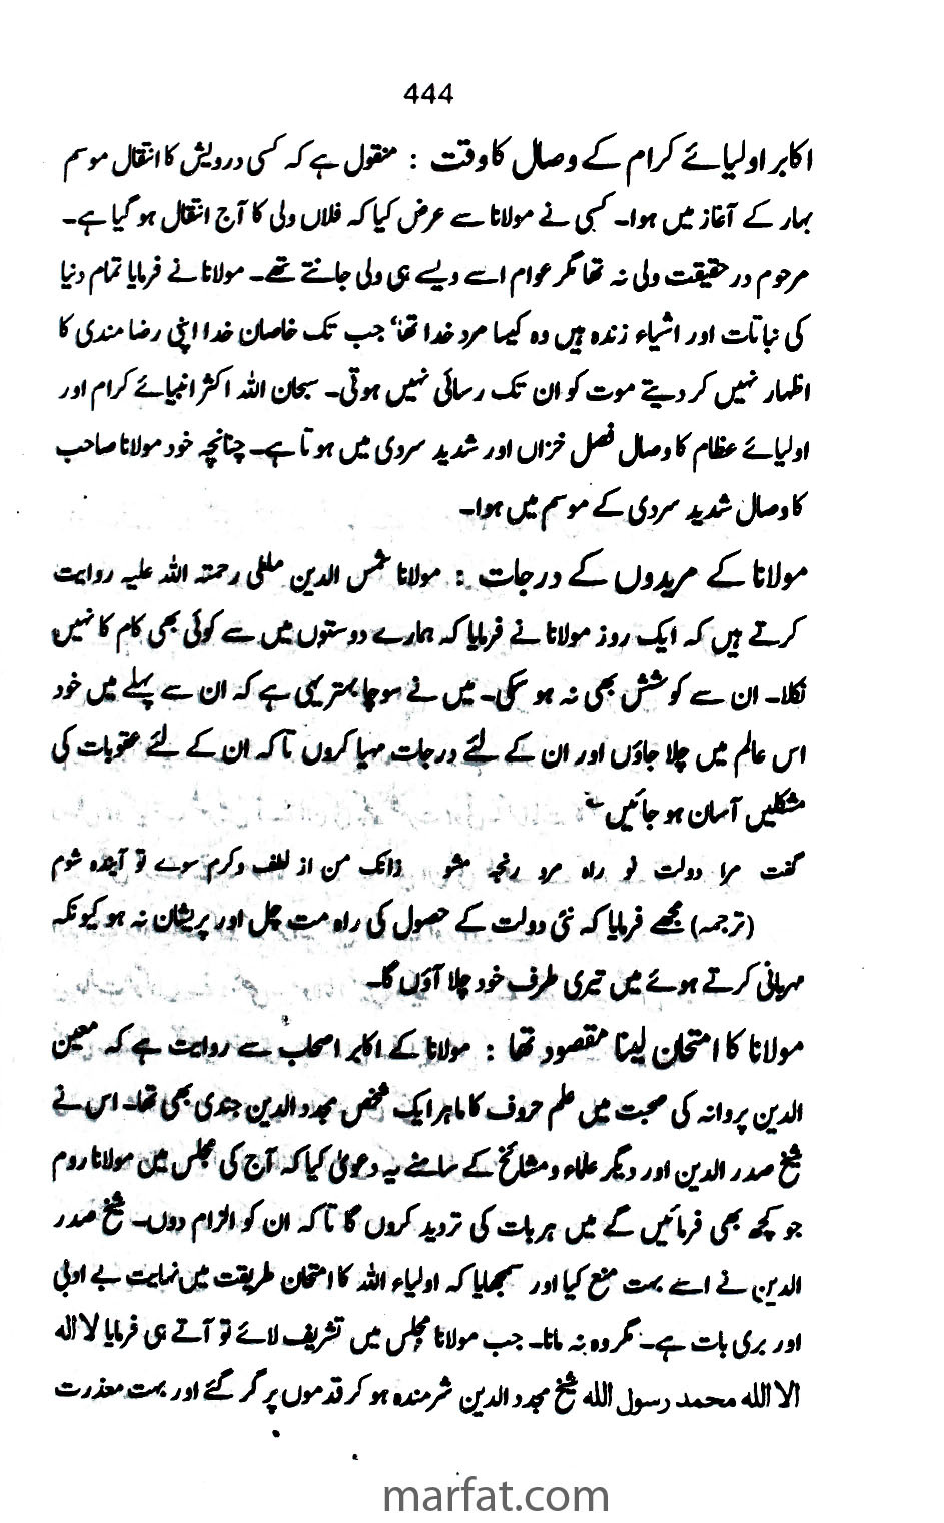 444
اکابر اولیائے کرام کے وصال کا وقت : منقول ہے کہ کسی درویش کا انتقال موسم
بہار کے آغاز میں ہوا۔ کسی نے مولانا سے عرض کیا کہ فلاں ولی کا آج انتقال ہو گیا ہے۔
مرحوم در حقیقت ولی نہ تھا مگر عوام اسے ویسے ہی ولی جانتے تھے۔ مولانا نے فرمایا تمام دنیا
کی نباتات اور اشیاء زندہ ہیں وہ کیسا مرد خدا تھا، جب تک خاصان خدا اپنی رضا مندی کا
اظہار نہیں کر دیتے موت کو ان تک رسائی نہیں ہوتی۔ سبحان اللہ اکثر انبیائے کرام اور
اولیائے عظام کا وصال فصل خزاں اور شدید سردی میں ہوتا ہے۔ چنانچہ خود مولانا صاحب
کا وصال شدید سردی کے موسم میں ہوا۔
مولانا کے مریدوں کے درجات : مولانا شمس الدین ملطی رحمتہ اللہ علیہ روایت
کرتے ہیں کہ ایک روز مولانا نے فرمایا کہ ہمارے دوستوں میں سے کوئی بھی کام کا نہیں
نکلا۔ ان سے کوشش بھی نہ ہو سکی۔ میں نے سوچا بہتر یہی ہے کہ ان سے پہلے میں خود
اس عالم میں چلا جاؤں اور ان کے لئے درجات مہیا کروں تاکہ ان کے لئے عقوبات کی
مشکلیں آسان ہو جائیں
گفت مرا دولت نو راہ مرو رنجہ مشو زانک من از لطف و کرم سوے تو آیندہ شوم
(ترجمہ) مجھے فرمایا کہ نئی دولت کے حصول کی راہ مت چل اور پریشان نہ ہو کیونکہ
مہربانی کرتے ہوئے میں تیری طرف خود چلا آؤں گا۔
مولانا کا امتحان لینا مقصود تھا : مولانا کے اکابر اصحاب سے روایت ہے کہ معین
الدین پروانہ کی صحبت میں علم حروف کا ماہر ایک شخص مجدد الدین جندی بھی تھا۔ اس نے
شیخ صدر الدین اور دیگر علماء و مشائخ کے سامنے یہ دعویٰ کیا کہ آج کی مجلس میں مولانا روم
جو کچھ بھی فرمائیں گے میں ہر بات کی تردید کروں گا تاکہ ان کو الزام دوں۔ شیخ صدر
الدین نے اسے بہت منع کیا اور سمجھایا کہ اولیاء اللہ کا امتحان طریقت میں نہایت بے ادبی
اور بری بات ہے۔ مگر وہ نہ مانا۔ جب مولانا مجلس میں تشریف لائے تو آتے ہی فرمایا لا الہ
الا اللہ محمد رسول اللہ شیخ مجدد الدین شرمندہ ہو کر قدموں پر گر گئے اور بہت معذرت
marfat.com